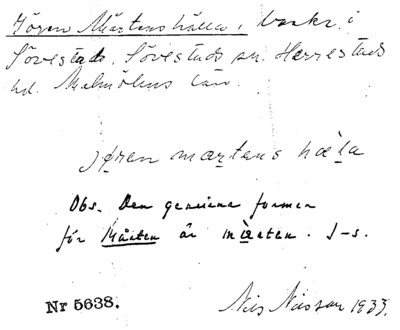 Jören Mårtens hälla, backe i
Sövestads, Sövestads sn. Herrestads
hd. Malmöhus län.
jøren martens hæ̀la
Obs. Den genuina formen
för Mårten är mɑ̀rten. J-s.
Nr 5638.
Nils Nilsson 1933.